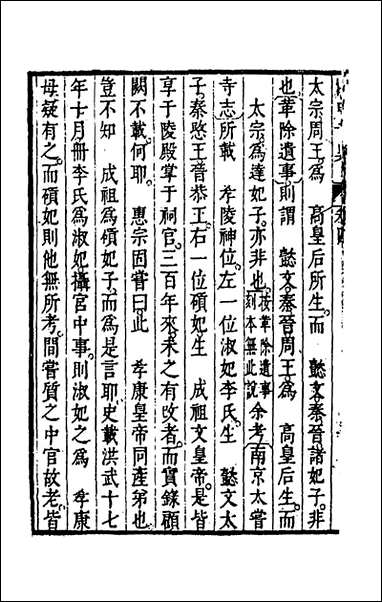 太宗周王爲　高皇后所生而　懿文秦晉諸妃子非
也革除遺事則謂　懿文秦晉周王爲　高皇后生而
太宗爲達妃子亦非也按革除遺事刻本無此說余考南京太嘗
寺志所載　孝陵神位左一位淑妃李氏生　懿文太
子秦愍王晉恭王右一位碩妃生　成祖文皇帝是皆
享于陵殿掌于祠官三百年來未之有改者而實錄顧
闕不載何耶　惠宗固嘗曰此　孝康皇帝同產弟也
豈不知　成祖爲碩妃子而爲是言耶史載洪武十七
年十月冊李氏爲淑妃攝宮中事則淑妃之爲　孝康
母疑有之而碩妃則他無所考間嘗質之中官故老皆